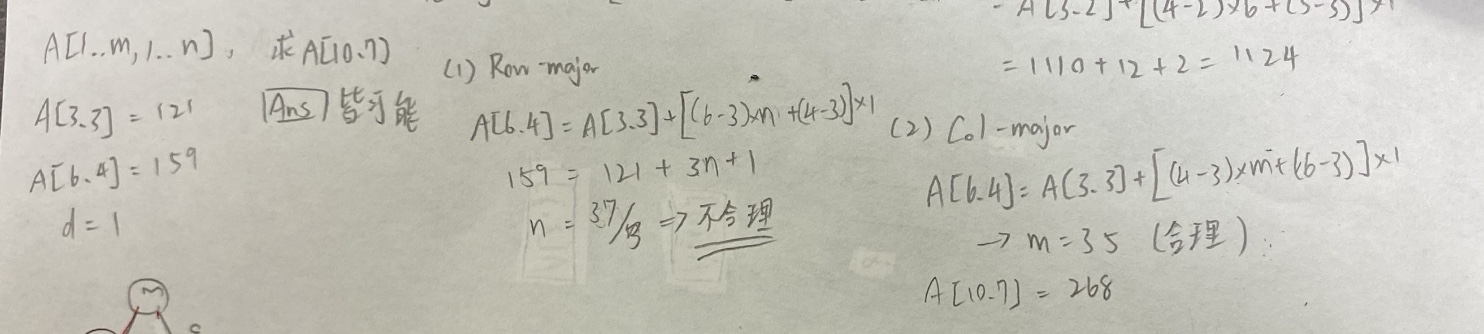 A[1..m, 1..n], 求 A[10.7]
A[3.3] = 121 [Ans] 皆可能
A[6.4] = 159
d = 1
(1) Row-major
A[6.4] = A[3.3] + [(6-3)×n + (4-3)]×1
159 = 121 + 3n + 1
n = 37/3 => 不合理
= 1110 + 12 + 2 = 1124
(2) Col-major
A[6.4] = A[3.3] + [(4-3)×m + (6-3)]×1
→ m = 35 (合理)
A[10.7] = 268
M